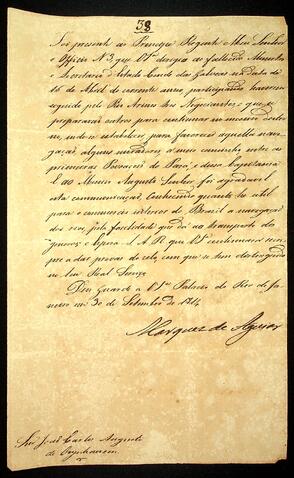 38
Foi presente ao Principe Regente Meu Senhor
o Officio N.3, que V.S.ª dirigio ao fallecido Ministro
e Secretario d'Estado Conde das Galveas na data de
16 de Abril do corrente anno, participando haverem
seguido pelo Rio Arinos tres Negociantes, e que se
preparavão outros para continuar no mesmo destino
no, e
para favorecer aquella nave-
gação, alguns moradores, a meio caminho entre as
primeiras Povoações do Pará, e dessa Capitania
E ao Mesmo Augusto Senhor foi agradavel
esta communicação, Conhecendo quanto he util
para o commercio interior do Brazil a navegação
dos rios, pela facilidade que dá ao transporte dos
generos; e Espera S. A. R. que V.S.ª continuará sem-
pre a dar provas do zelo, com que se tem distinguido
no Seu Real Serviço.
Deus Guarde a V.S.ª Palacio do Rio de Ja-
neiro em 30 de Setembro de 1814
Marquez de Aguiar
Snr. João Carlos Augusto
de Oeynhausen